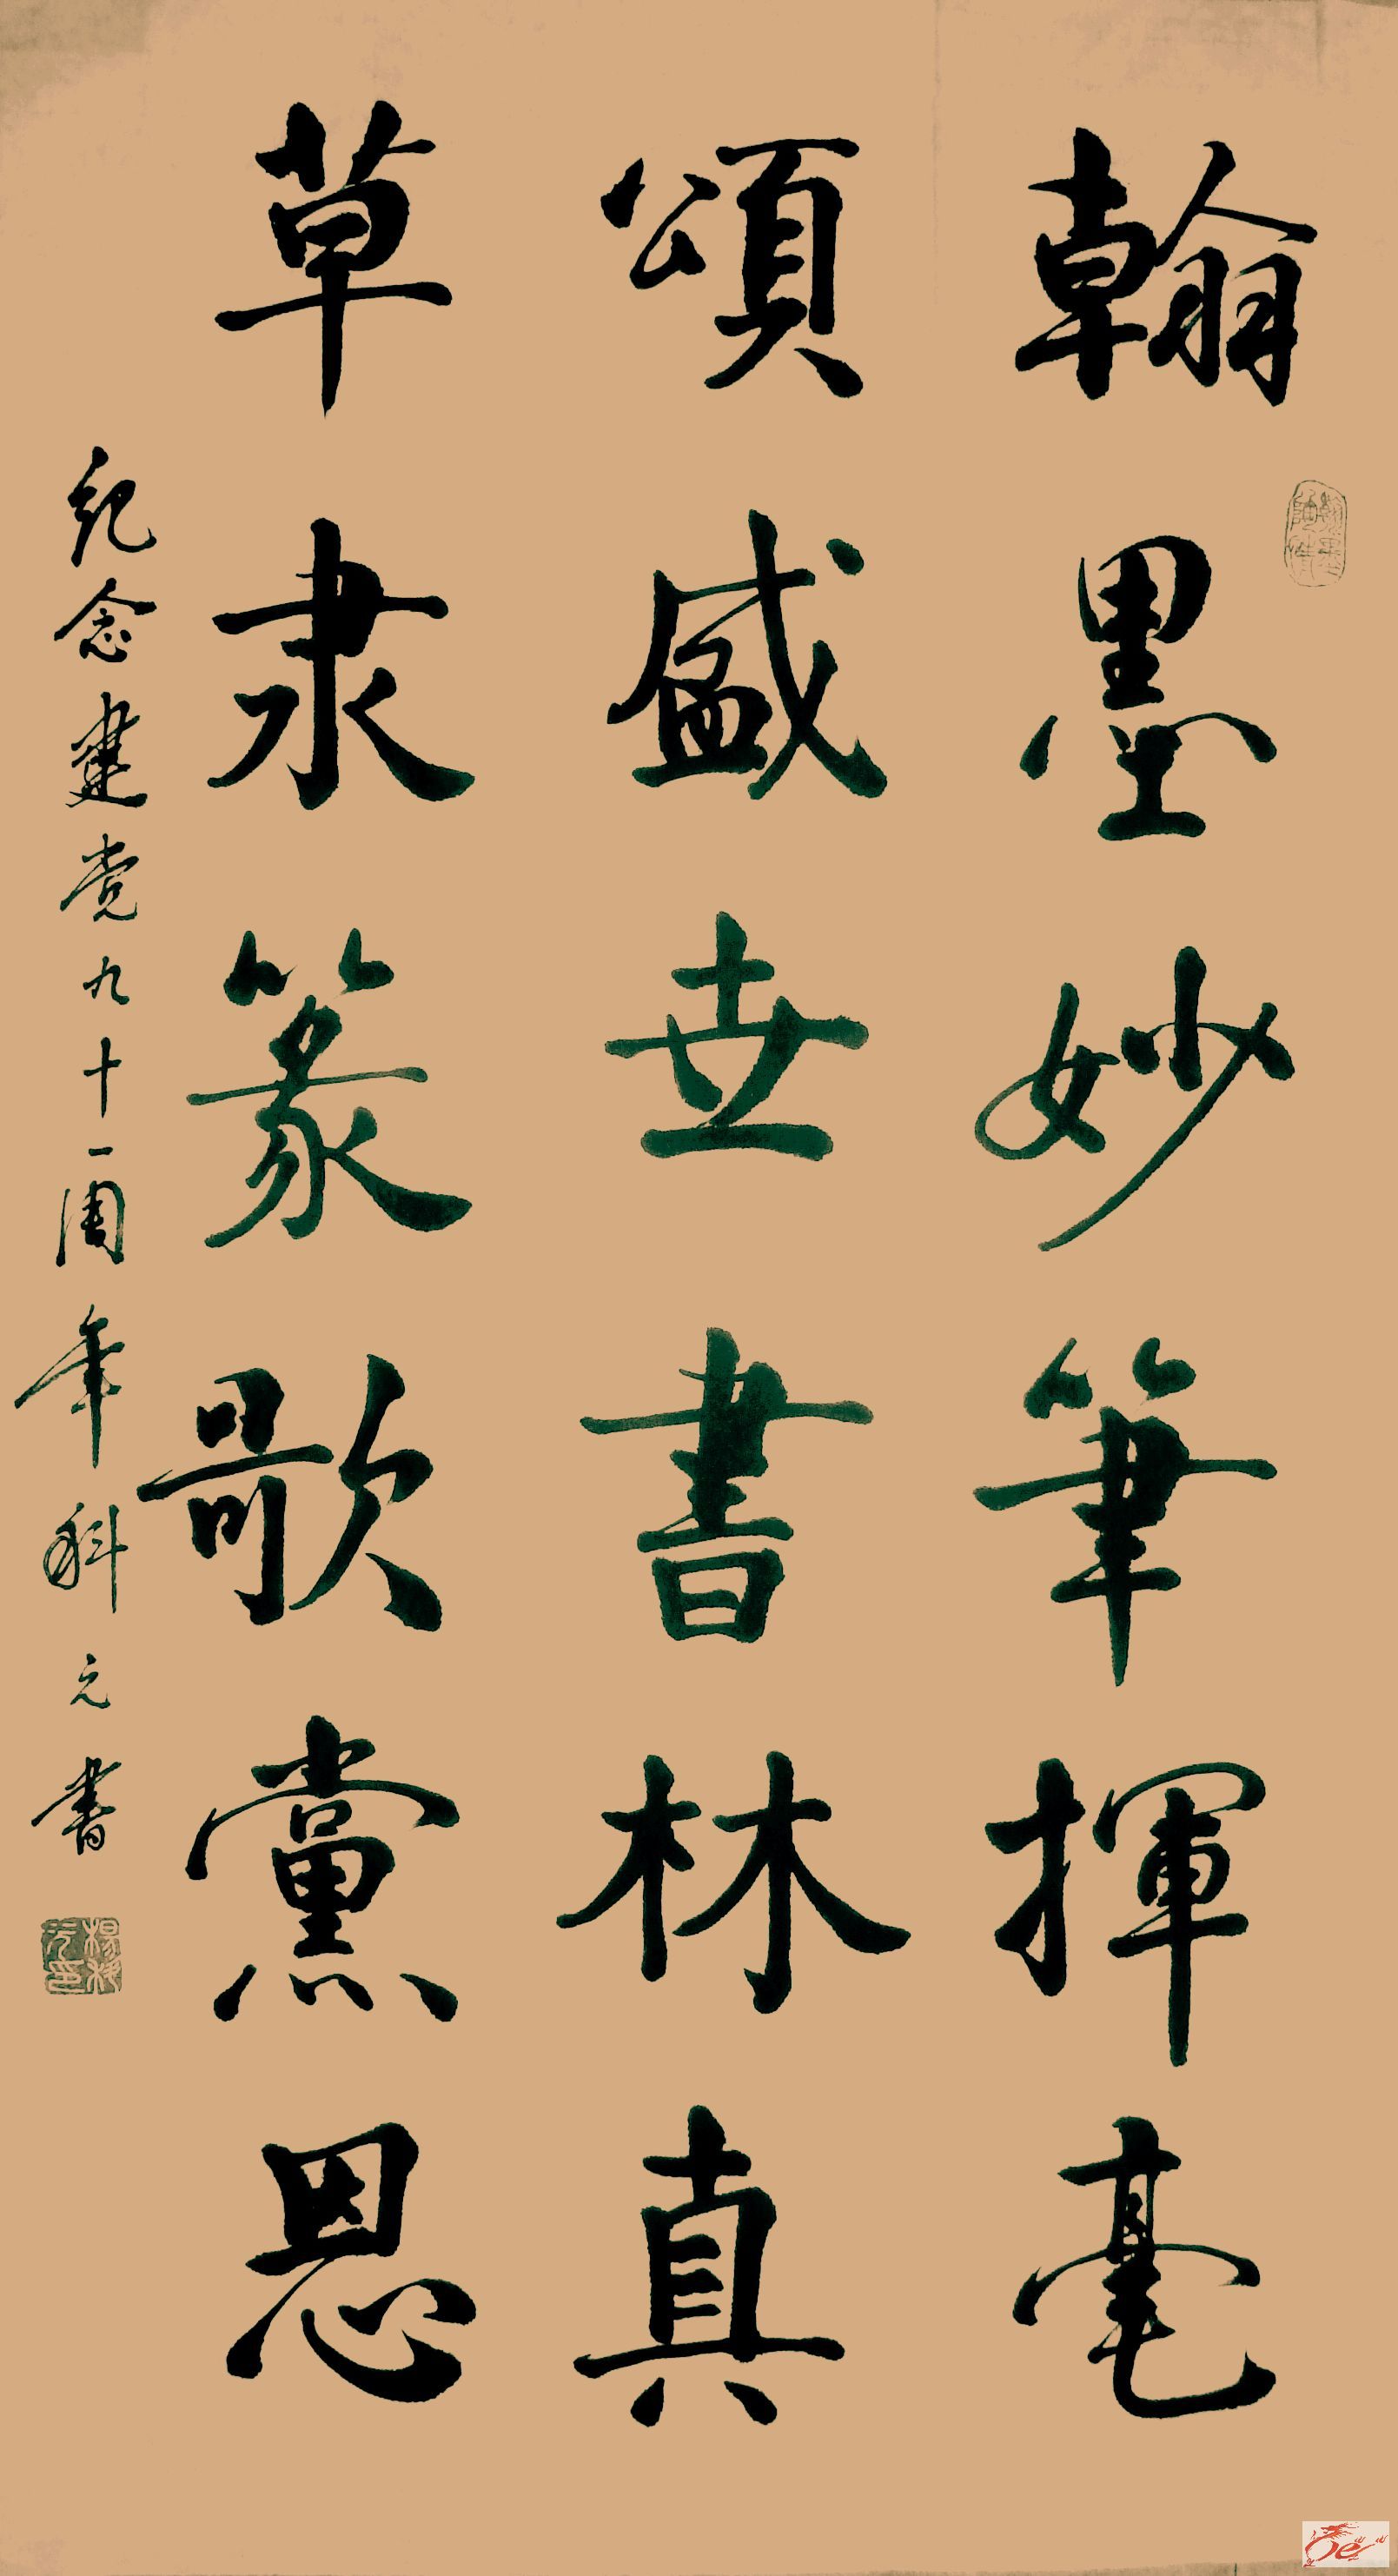 翰墨妙筆揮毫
頌盛世書林真
草隶篆歌黨恩
纪念建党九十一周年科元書